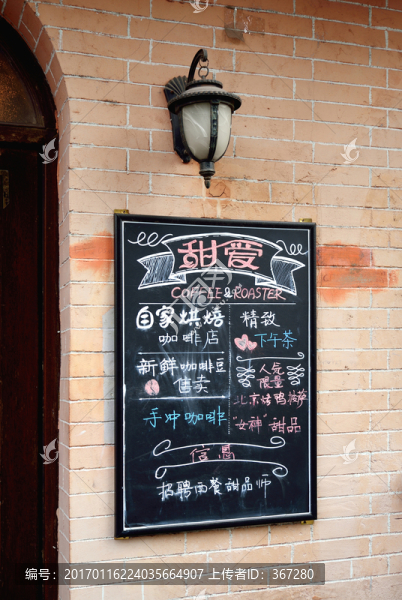 甜爱
COFFEE & ROASTER
自家烘焙
咖啡店
新鲜咖啡豆
售卖
手冲咖啡
精致
下午茶
人气
限量
北京烤鸭披萨
"女神"甜品
信息
招聘西餐甜品师
编号:20170116224035664907 上传者ID:367280